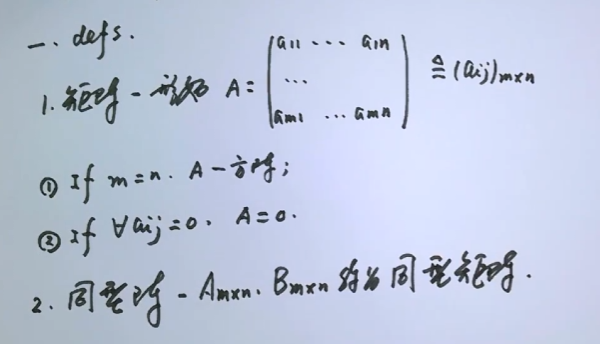 一. defs.
1. 矩阵 - 形如 A = (a11 ... a1n
...
am1 ... amn) ≜ (aij)m×n
① If m=n. A-方阵;
② If ∀aij=0. A=0.
2. 同型阵 - Am×n. Bm×n 称为同型矩阵.